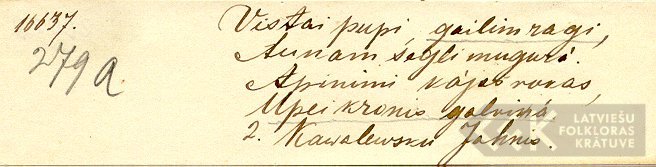 16637.
279a.
Vistai pupi, gailim ragi,
Aunam segli mugurá.
Apinimi kájas rokas,
Upei kronis galviná.
2. Kawalewsku Jahnis.
LATVIEŠU
FOLKLORAS
KRĀTUVE